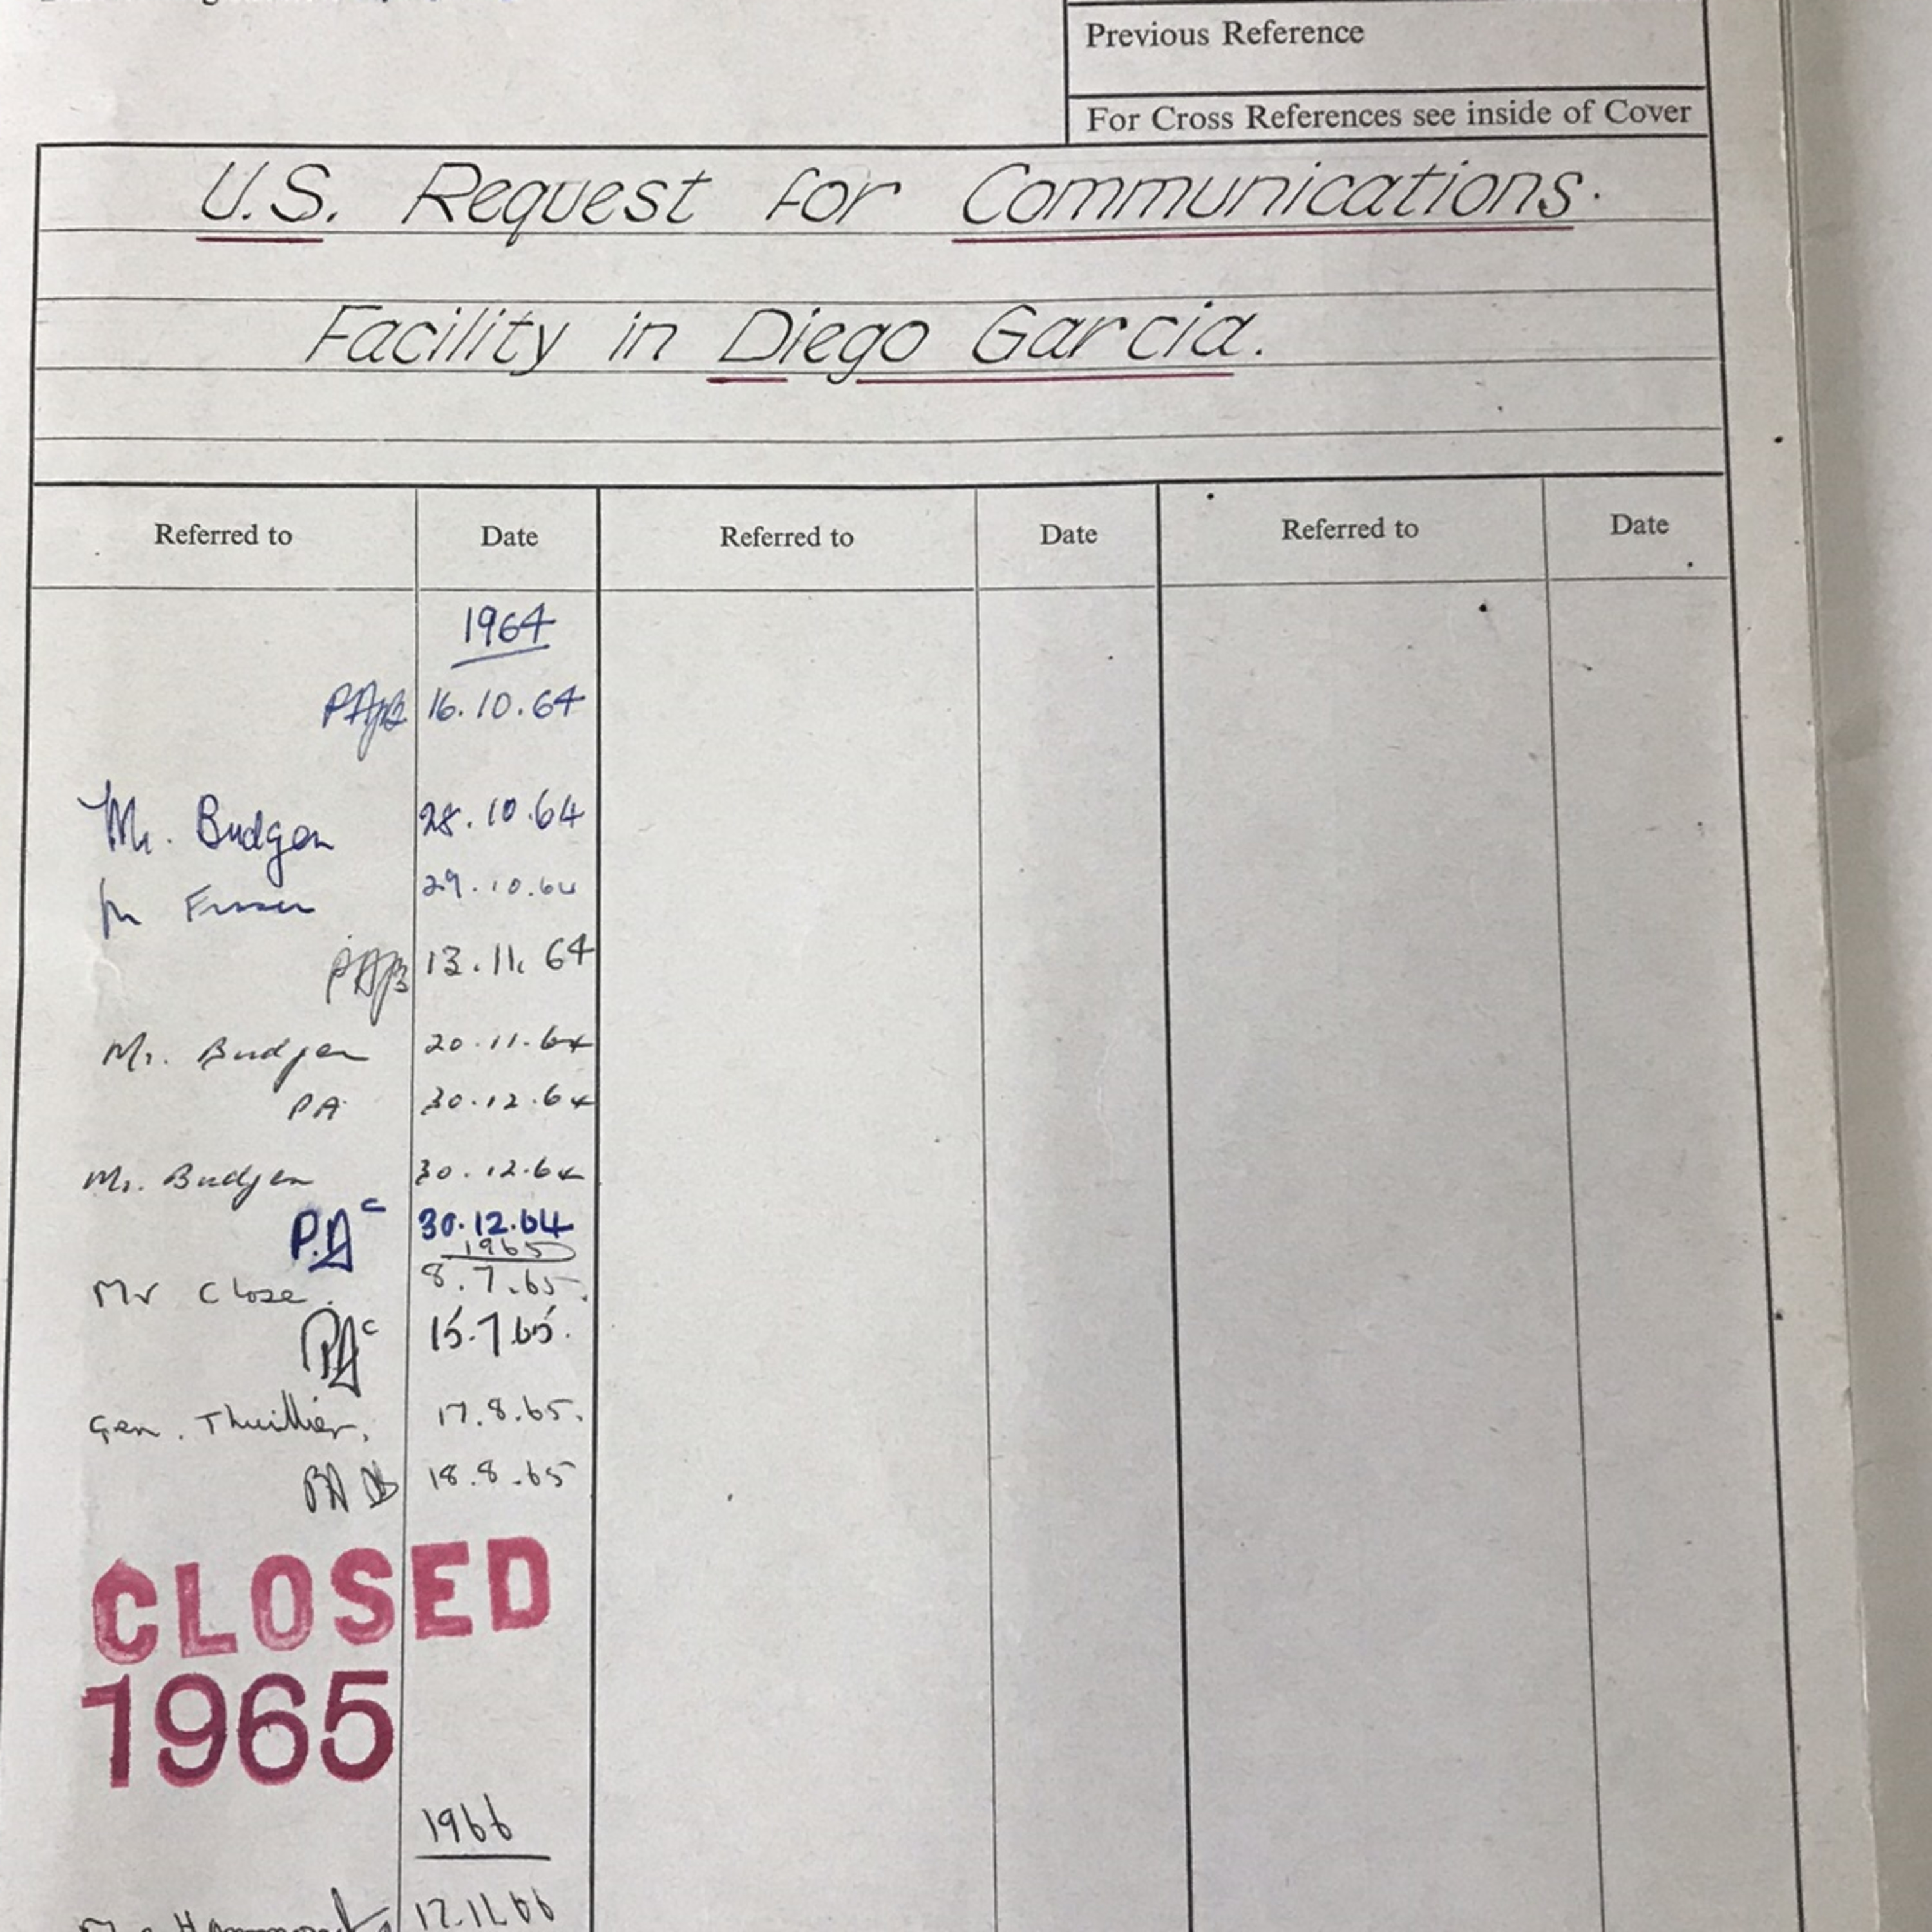 Previous Reference
For Cross References see inside of Cover
U.S. Request for Communications.
Facility in Diego Garcia.
Referred to Date Referred to Date Referred to Date
1964
16.10.64
Mr. Budgen 28.10.64
29.10.64
13.11.64
Mr. Budgen 20.11.64
PA 30.12.64
Mr. Budgen 30.12.64
P.A c 30.12.64
1965
Mr Close. 8.7.65.
PA c 15.7.65.
Gen. Thuillier, 17.8.65.
18.8.65
CLOSED
1965
1966